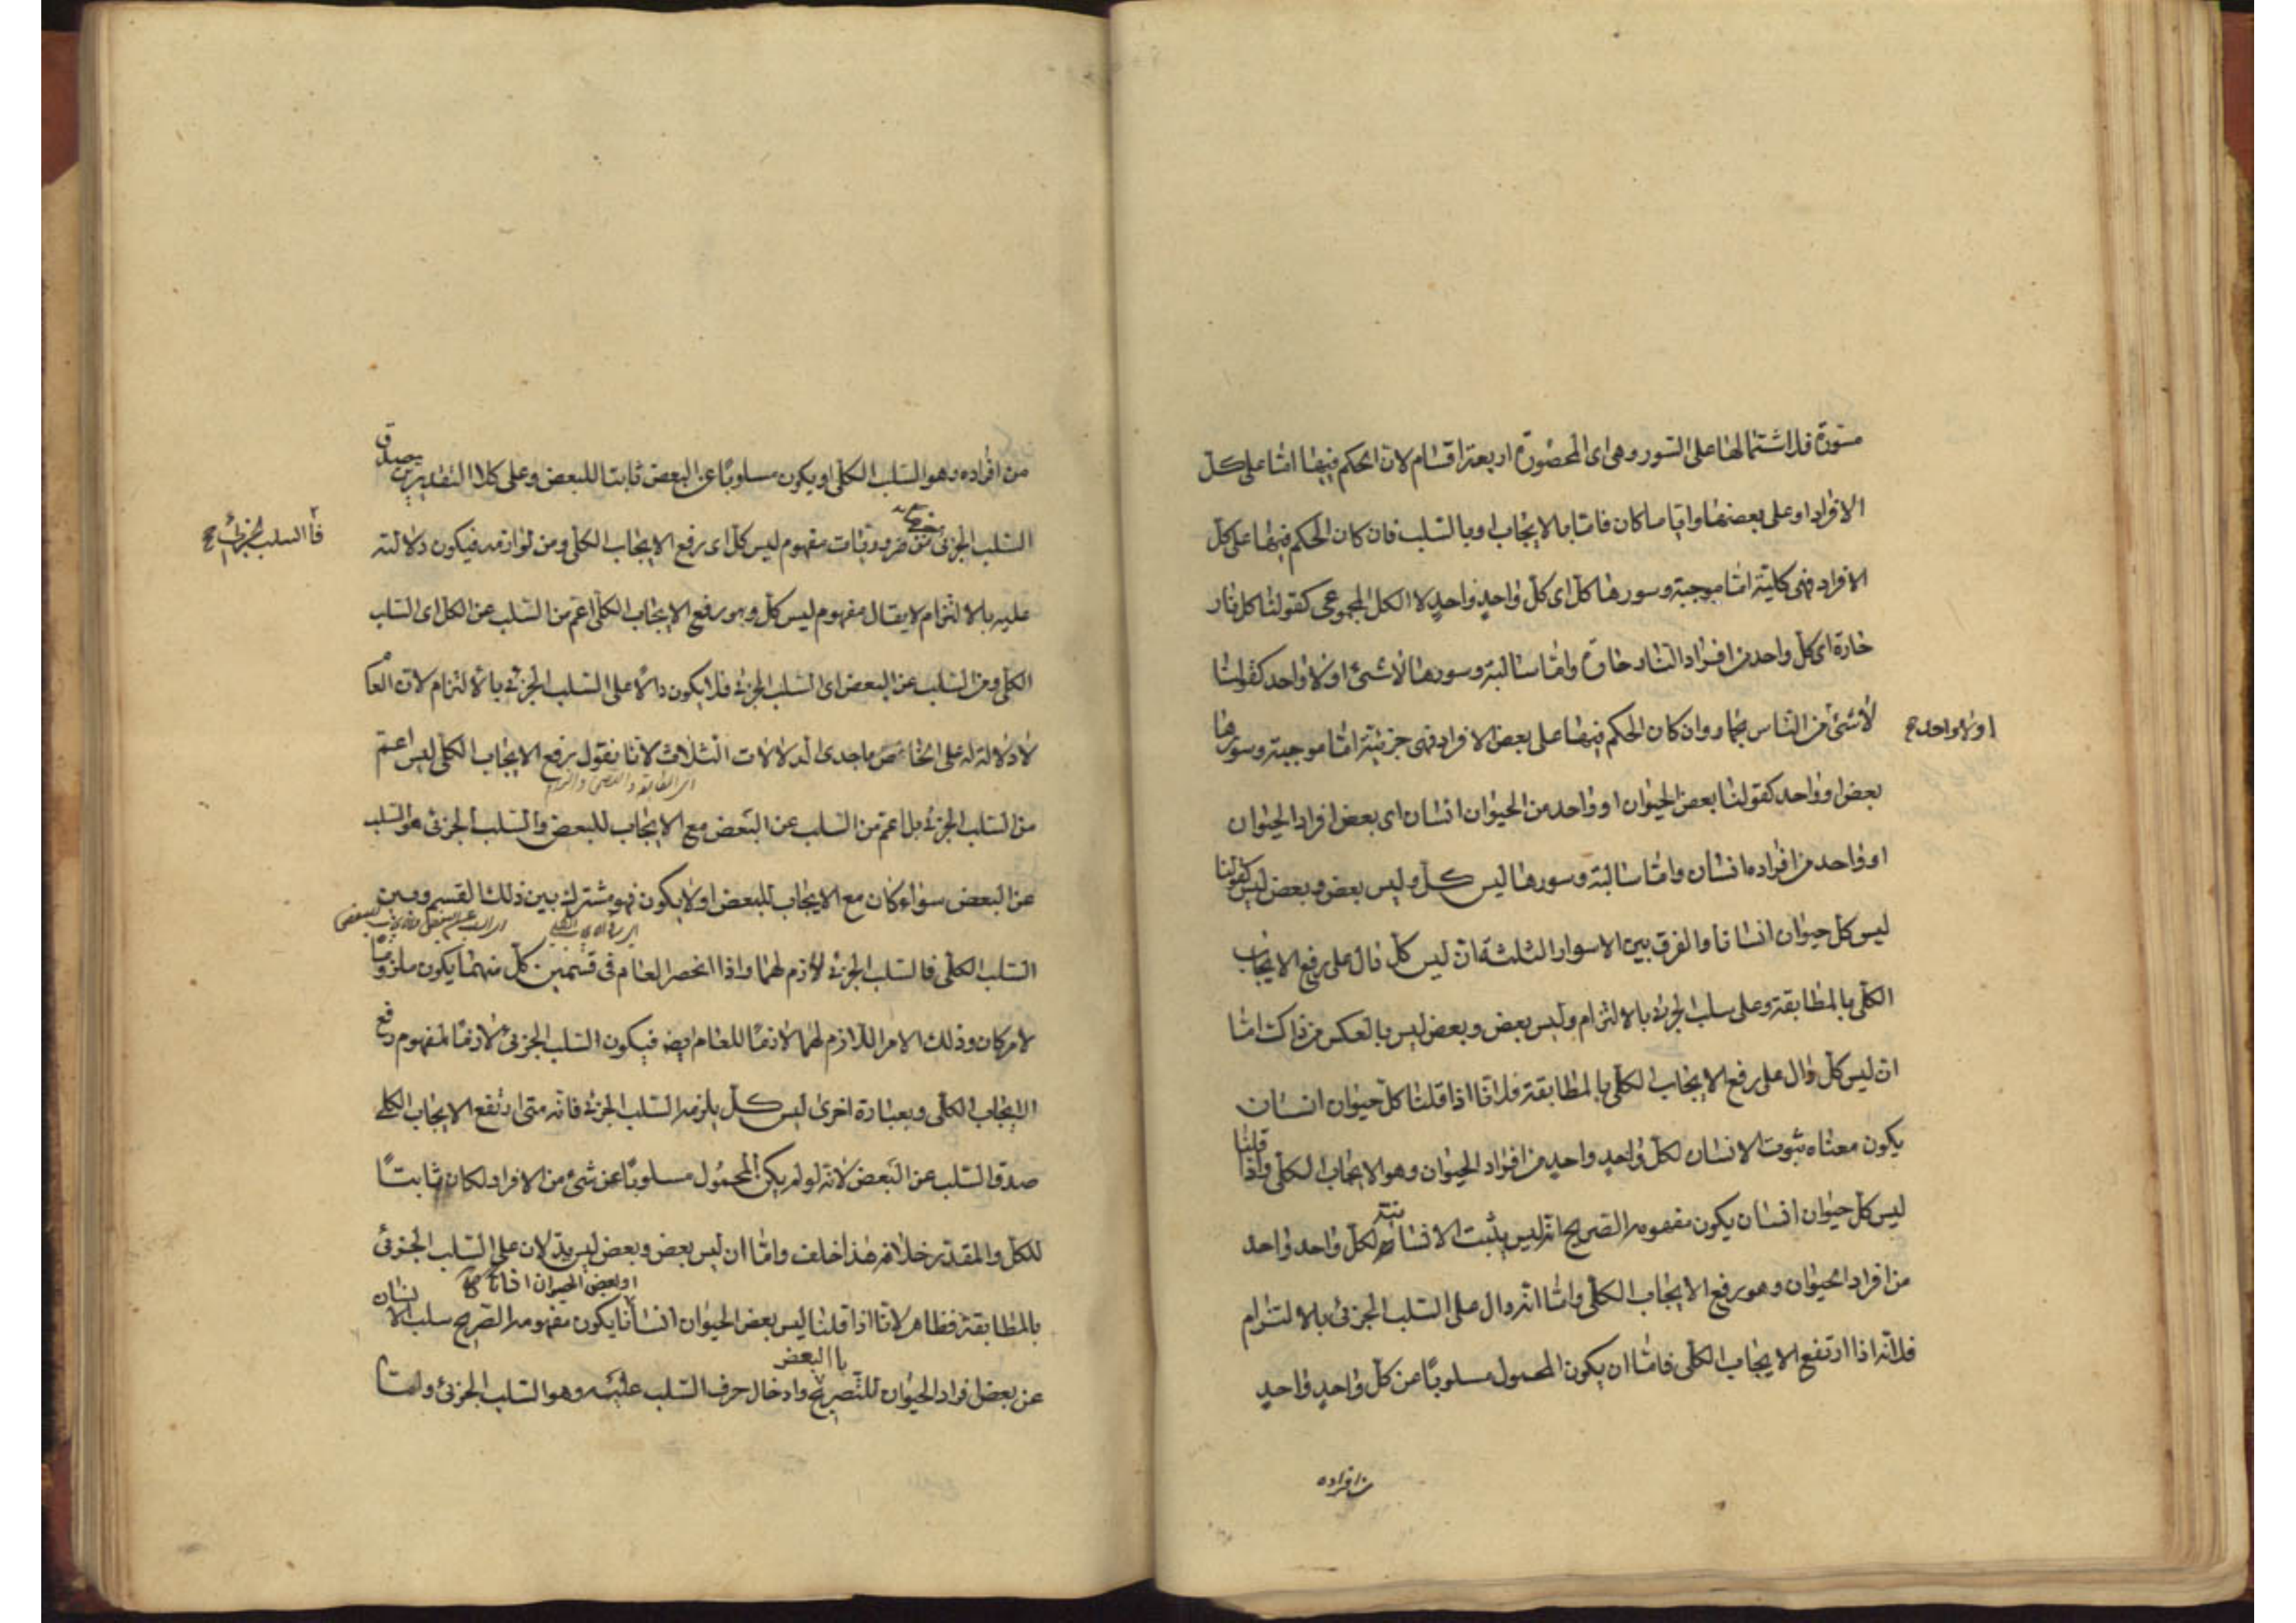 مسورة فلاشتمالها على السور وهى اى المحصورة اربعة اقسام لان الحكم فيها امّا على كلّ
الافراد او على بعضها وايّا ما كان فامّا بالايجاب او بالسّلب فان كان الحكم فيها على كلّ
الافراد فهى كليّة امّا موجبة وسورها كلّ اى كلّ واحدٍ واحدٍ لا الكل المجموعى كقولنا كل نار
حارة اى كلّ واحد من افراد النار حارة وامّا سالبة وسورها لا شىء او لا واحد كقولنا
لا شىء من النّاس بجماد وان كان الحكم فيها على بعض الافراد فهى جزئيّة امّا موجبة وسورها
او لا واحد ح
بعض او واحد كقولنا بعض الحيوان او واحد من الحيوان انسان اى بعض افراد الحيوان
او واحد من افراده انسان وامّا سالبة وسورها ليس كلّ وليس بعض وبعض ليس كقولنا
ليس كل حيوان انسانا والفرق بين الاسوار الثلثة انّ ليس كلّ دالّ على رفع الايجاب
الكلّى بالمطابقة وعلى سلب الجزئى بالالتزام وليس بعض وبعض ليس بالعكس من ذلك امّا
انّ ليس كلّ دالّ على رفع الايجاب الكلّى بالمطابقة فلانّا اذا قلنا كلّ حيوان انسان
يكون معناه ثبوت الانسان لكلّ واحدٍ واحدٍ من افراد الحيوان وهو الايجاب الكلّى واذا قلنا
ليس كلّ حيوان انسان يكون مفهومه الصريح انّه ليس يثبت الانسانية لكلّ واحد واحد
من افراد الحيوان وهو رفع الايجاب الكلّى وامّا انّه دالّ على السّلب الجزئى بالالتزام
فلانّه اذا ارتفع الايجاب الكلّى فامّا ان يكون المحمول مسلوبًا من كلّ واحدٍ واحدٍ
من افراده
من افراده وهو السّلب الكلّى او يكون مسلوبًا عن البعض ثابتا للبعض وعلى كلا التقديرين يصدق
السّلب الجزئى من ضروريّات مفهوم ليس كلّ اى رفع الايجاب الكلّى ومن لوازمه فيكون دلالته
فالسلب الجزئى ح
عليه بالالتزام لا يقال مفهوم ليس كلّ وهو رفع الايجاب الكلّى اعمّ من السّلب عن الكلّ اى السّلب
الكلّى ومن السّلب عن البعض اى السّلب الجزئى فلا يكون دالًّا على السّلب الجزئى بالالتزام لانّ العام
لا دلالة له على الخاص باحدى الدلالات الثلاث لانّا نقول رفع الايجاب الكلّى ليس اعمّ
اى المطابقة والتضمن والالتزام
من السّلب الجزئى بل اعمّ من السّلب عن البعض مع الايجاب للبعض والسّلب الجزئى هو السّلب
عن البعض سواء كان مع الايجاب للبعض او لا يكون فهو مشترك بين ذلك القسم وبين
السّلب الكلّى فالسّلب الجزئى لازم لهما واذا انحصر العام فى قسمين كلّ منهما يكون ملزومًا
لامر كان وذلك الامر اللازم لهما لازمًا للعام ايضا فيكون السّلب الجزئى لازمًا لمفهوم رفع
الايجاب الكلّى وبعبارة اخرى ليس كلّ يلزمه السّلب الجزئى فانّه متى ارتفع الايجاب الكلّى
صدق السّلب عن البعض لانّه لو لم يكن المحمول مسلوبًا عن شىء من الافراد لكان ثابتًا
للكلّ والمقدّر خلافه هذا خلف وامّا ان ليس بعض وبعض ليس يدّلان على السّلب الجزئى
او بعض الحيوان
بالمطابقة فظاهر لانّا اذا قلنا ليس بعض الحيوان انسانًا يكون مفهومه الصّريح سلب الانسان
بالبعض
عن بعض افراد الحيوان للتّصريح وادخال حرف السّلب عليه وهو السّلب الجزئى وامّا